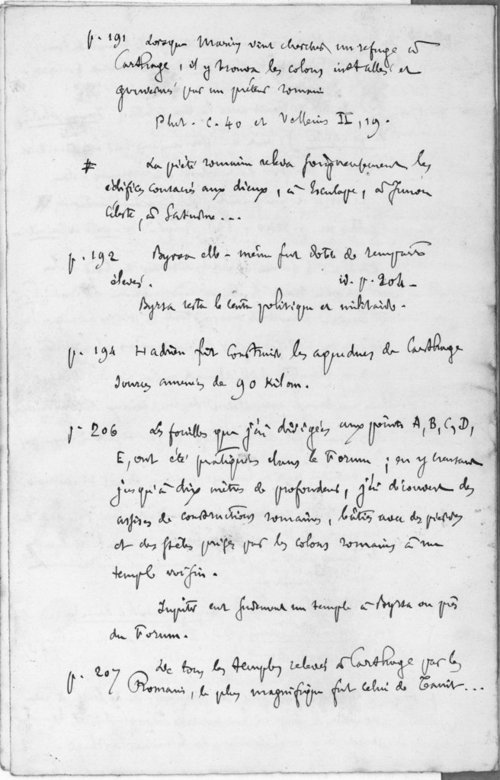 p. 191 Lorsque Marius vint chercher un refuge à
Carthage, il y trouva les colons installés et
gouvernés par un préteur romain
Plut. C. 40 et Velleius II, 19.
# La piété romaine releva soigneusement les
édifices consacrés aux dieux, à Esculape, à Junon
Céleste, à Saturne...
p. 192 Byrsa elle-même fut dotée de remparts
élevés. id. p. 204-
Byrsa resta le centre politique et militaire.
p. 194 Hadrien fit construire les aqueducs de Carthage
sources amenées de 90 Kilom.
p. 206 Les fouilles que j'ai dirigées aux points A, B, C, D,
E, ont été pratiquées dans le Forum; en y creusant
jusqu'à dix mètres de profondeur, j'ai découvert des
assises de constructions romaines, bâties avec des pierres
et des stèles prises par les colons romains à un
temple voisin.
Jupiter eut sûrement un temple à Byrsa ou près
du Forum.
p. 207 De tous les temples relevés à Carthage par les
Romains, le plus magnifique fut celui de Tanit...